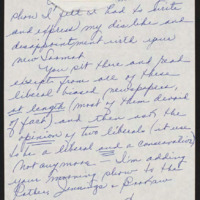 show I felt I had to write
and express my dislike and
disappointment with your
new format.
You sit there and read
excerpts from all of these
liberal biased newspapers,
at length (most of them devoid
of fact) and then ask the
opinion of two liberals (it use
to be a liberal and a conservative)
not anymore. – I'm adding
your morning show to the
Rather, Jennings & Brokaw